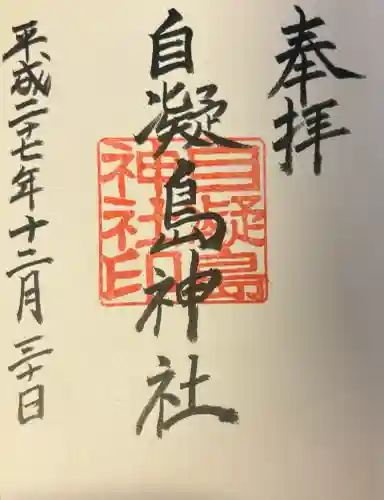 奉拝
自凝島神社
自凝島神社印
平成二十七年十二月三十日